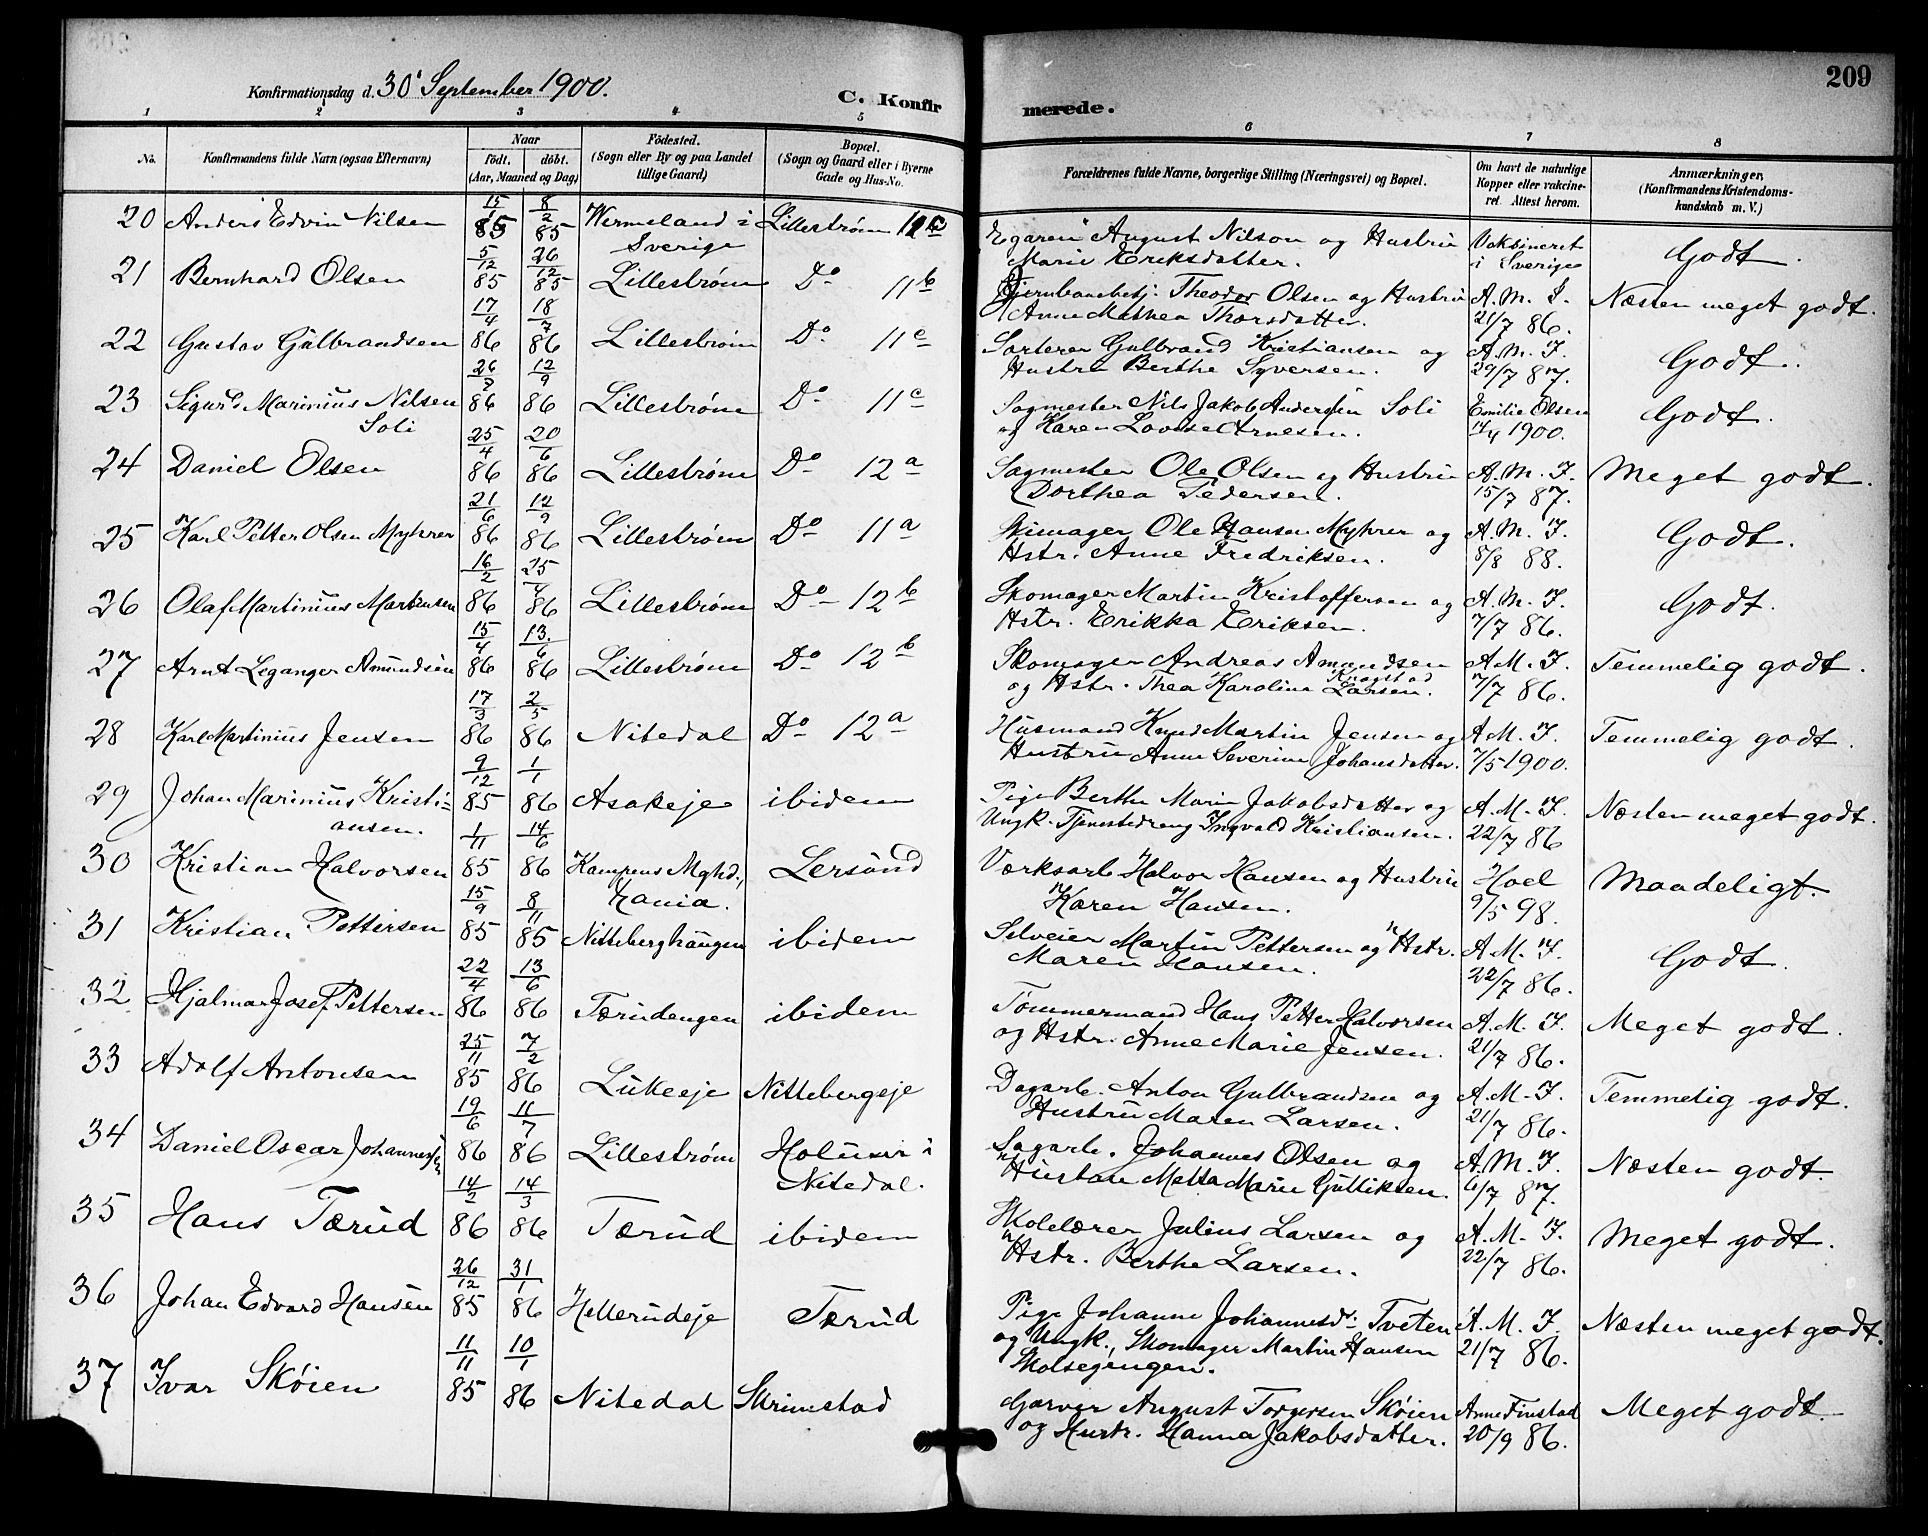 209
Konfirmationsdag d. 30' September 1900.
C. Konfir
merede.
1 2 3 4 5 6 7 8
No.
Konfirmandens fulde Navn (ogsaa Efternavn)
Naar
født. døbt.
(Aar, Maaned og Dag)
Fødested.
(Sogn eller By og paa Landet
tillige Gaard)
Bopæl.
(Sogn og Gaard eller i Byerne
Gade og Hus-No.
Forældrenes fulde Navne, borgerlige Stilling (Næringsvei) og Bopæl.
Om havt de naturlige
Kopper eller vakcine-
ret. Attest herom.
Anmærkninger,
(Konfirmandens Kristendoms-
kundskab m. V.)
20 Anders Edvin Nilsen 15/1 85 8/2 85 Wermeland i Lillestrøm
Sverige
Egaren August Nilson og Hustru Vaksineret Godt.
Marie Eriksdatter. i Sverige
21 Bernhard Olsen 5/12 85 26/12 85 Lillestrøm Do 11b
Jernbanebetj. Theodor Olsen og Hustru A. M. I. Næsten meget godt.
Anne Mathea Thorsdatter. 21/7 86.
22 Gustav Gulbrandsen 17/4 86 18/7 86 Lillestrøm Do 11c
Sorterer Gulbrand Kristiansen og A. M. I. Godt.
Hustru Berthe Syversen. 29/7 87.
23 Sigurd Marinius Nilsen 26/7 86 12/9 86 Lillestrøm Do 11c
Soli
Sagmester Nils Jakob Andersen Soli Emilie Olsen Godt.
og Karen Lovise Arnesen. 17/4 1900.
24 Daniel Olsen 25/4 86 20/6 86 Lillestrøm Do 12a
Sagmester Ole Olsen og Hustru A. M. I. Meget godt.
Dorthea Pedersen. 15/7 87.
25 Karl Petter Olsen Myhrer 21/6 86 12/9 86 Lillestrøm Do 11a
Skimager Ole Hansen Myhrer og A. M. I. Godt.
Hstr. Anne Fredriksen. 8/8 88.
26 Olaf Martinius Martinsen 16/2 86 25/4 86 Lillestrøm Do 12b
Skomager Martin Kristoffersen og A. M. I. Godt.
Hstr. Erikka Eriksen. 7/7 86.
27 Arnt Leganger Amundsen 15/4 86 13/6 86 Lillestrøm Do 12b
Skomager Andreas Amundsen A. M. I. Temmelig godt.
og Hstr. Thea Karoline Larsen. 7/7 86.
28 Karl Martinius Jensen 17/3 86 2/5 86 Nitedal Do 12a
Husmand Knud Martin Jensen og A. M. I. Temmelig godt.
Hustru Anne Severine Johansdatter. 7/5 1900.
29 Johan Marinius Kristi- 9/12 85 1/1 86 Asakeje ibidem
ansen.
Pige Berthe Marie Jakobsdatter og A. M. I. Næsten meget godt.
Ungk. Tjenestedreng Ingvald Kristiansen. 22/7 86
30 Kristian Halvorsen 1/11 85 14/6 86 Kampens Mghd., Lersund
Kania.
Værksarb. Halvor Hansen og Hustru Hoel Maadeligt.
Karen Hansen. 9/5 98.
31 Kristian Pettersen 15/9 85 8/11 85 Nitteberghaugen ibidem
Selveier Martin Pettersen og Hstr. A. M. I. Godt.
Maren Hansen. 22/7 86.
32 Hjalmar Josef Pettersen 22/4 86 13/6 86 Tærudengen ibidem
Tømmermand Hans Petter Halvorsen A. M. I. Meget godt.
og Hstr. Anne Marie Jensen. 21/7 86.
33 Adolf Antonsen 25/11 85 7/2 86 Lukeeje Nittebergeje
Dagarb. Anton Gulbrandsen og A. M. I. Temmelig godt.
Hustru Maren Larsen. 21/7 86.
34 Daniel Oscar Johannessen 19/6 86 11/7 86 Lillestrøm Holum i
Nitedal.
Sagarb. Johannes Olsen og A. M. I. Næsten godt.
Hustru Metta Marie Gulliksen. 6/7 87.
35 Hans Tærud 14/2 86 14/3 86 Tærud ibidem
Skolelærer Julius Larsen og A. M. I. Meget godt.
Hstr. Berthe Larsen. 22/7 86.
36 Johan Edvard Hansen 26/12 85 31/1 86 Hellerudeje Tærud
Pige Johanne Johannesd. Tveten A. M. I. Næsten meget godt.
og Ungk., Skomager Martin Hansen 21/7 86.
37 Ivar Skøien 11/11 85 10/1 86 Nitedal Skrimstad
Garver August Torgersen Skøien Anne Finstad Meget godt.
og Hustr. Hanna Jakobsdatter. 20/9 86.